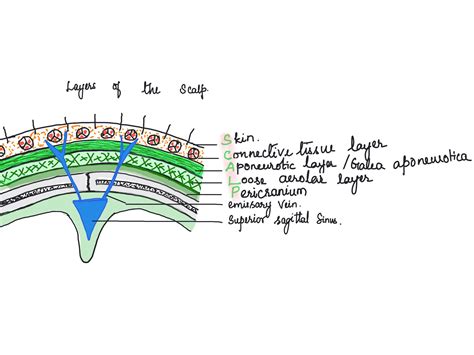 Layers of the Scalp.
Skin.
Connective tissue layer
Aponeurotic layer /Galea aponeurotica
Loose aerolar layer
Pericranium
emissary vein.
Superior sagittal Sinus.